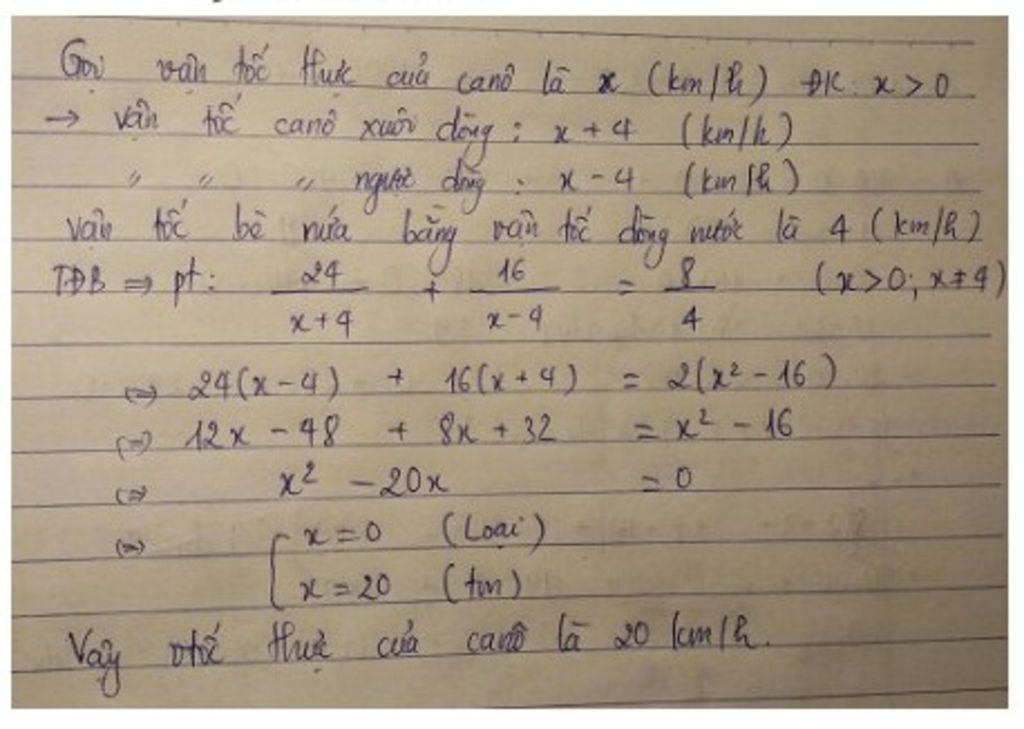 Gọi vận tốc thực của canô là x (km/h) ĐK: x > 0
→ vận tốc canô xuôi dòng : x + 4 (km/h)
〃 〃 〃 ngược dòng : x - 4 (km/h)
vận tốc bè nứa bằng vận tốc dòng nước là 4 (km/h)
TĐB ⇒ pt: 24/(x+4) + 16/(x-4) = 8/4 (x>0; x≠4)
(=) 24(x-4) + 16(x+4) = 2(x² - 16)
(=) 12x - 48 + 8x + 32 = x² - 16
(=) x² - 20x = 0
(=) [ x = 0 (Loại)
x = 20 (tm)
Vậy vtốc thực của canô là 20 km/h.